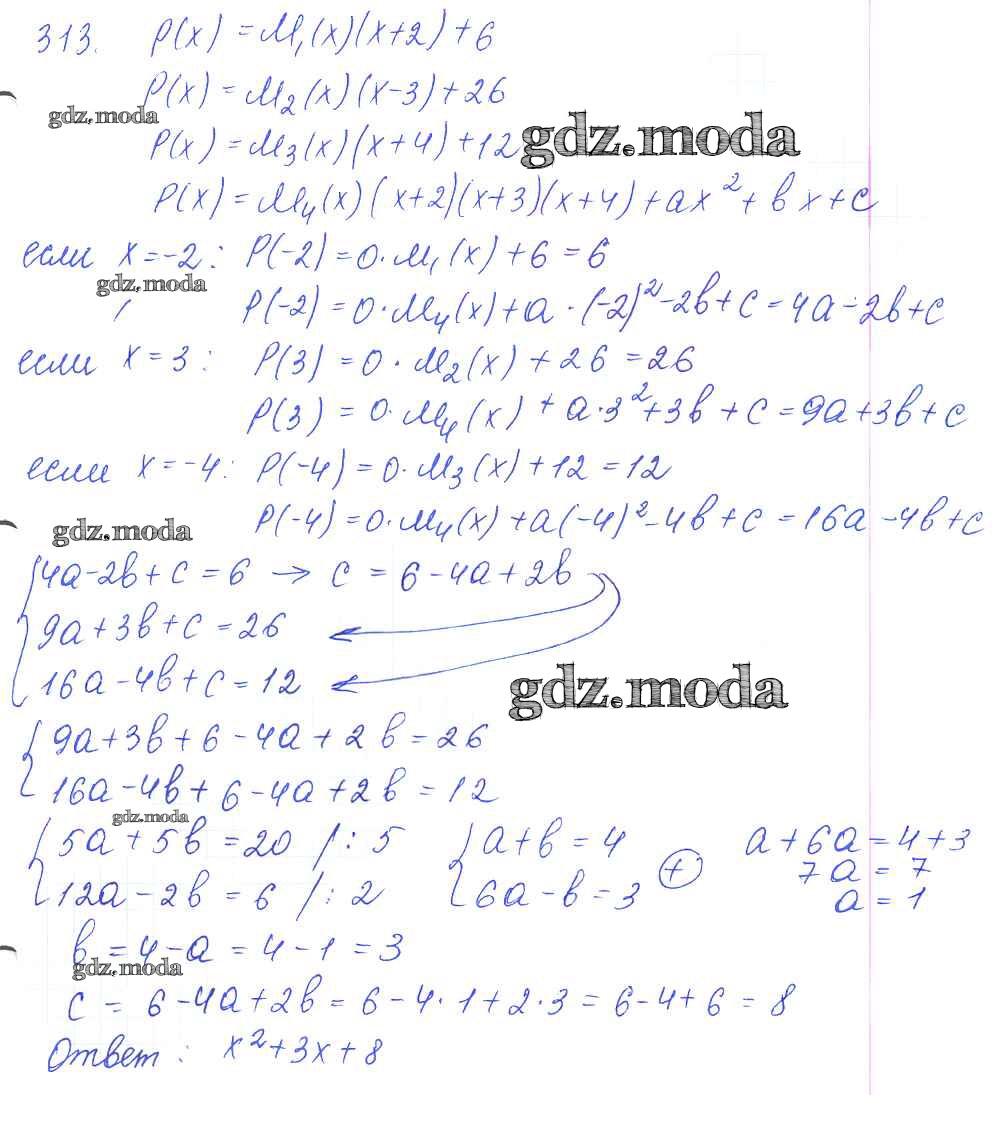 313. P(x) = M₁(x)(x+2)+6
P(x) = M₂(x)(x-3)+26
gdz.moda
gdz.moda
P(x) = M₃(x)(x+4)+12
P(x) = M₄(x)(x+2)(x+3)(x+4)+ax²+bx+c
если x=-2: P(-2)=0·M₁(x)+6=6
gdz.moda
P(-2)=0·M₄(x)+a·(-2)²-2b+c=4a-2b+c
если x=3: P(3)=0·M₂(x)+26=26
P(3)=0·M₄(x)+a·3²+3b+c=9a+3b+c
если x=-4: P(-4)=0·M₃(x)+12=12
P(-4)=0·M₄(x)+a(-4)²-4b+c=16a-4b+c
gdz.moda
4a-2b+c=6 → c=6-4a+2b
9a+3b+c=26
16a-4b+c=12
gdz.moda
9a+3b+6-4a+2b=26
16a-4b+6-4a+2b=12
gdz.moda
5a+5b=20 /:5 a+b=4 a+6a=4+3
12a-2b=6 /:2 6a-b=3 + 7a=7
a=1
b=4-a=4-1=3
gdz.moda
c=6-4a+2b=6-4·1+2·3=6-4+6=8
Ответ: x²+3x+8